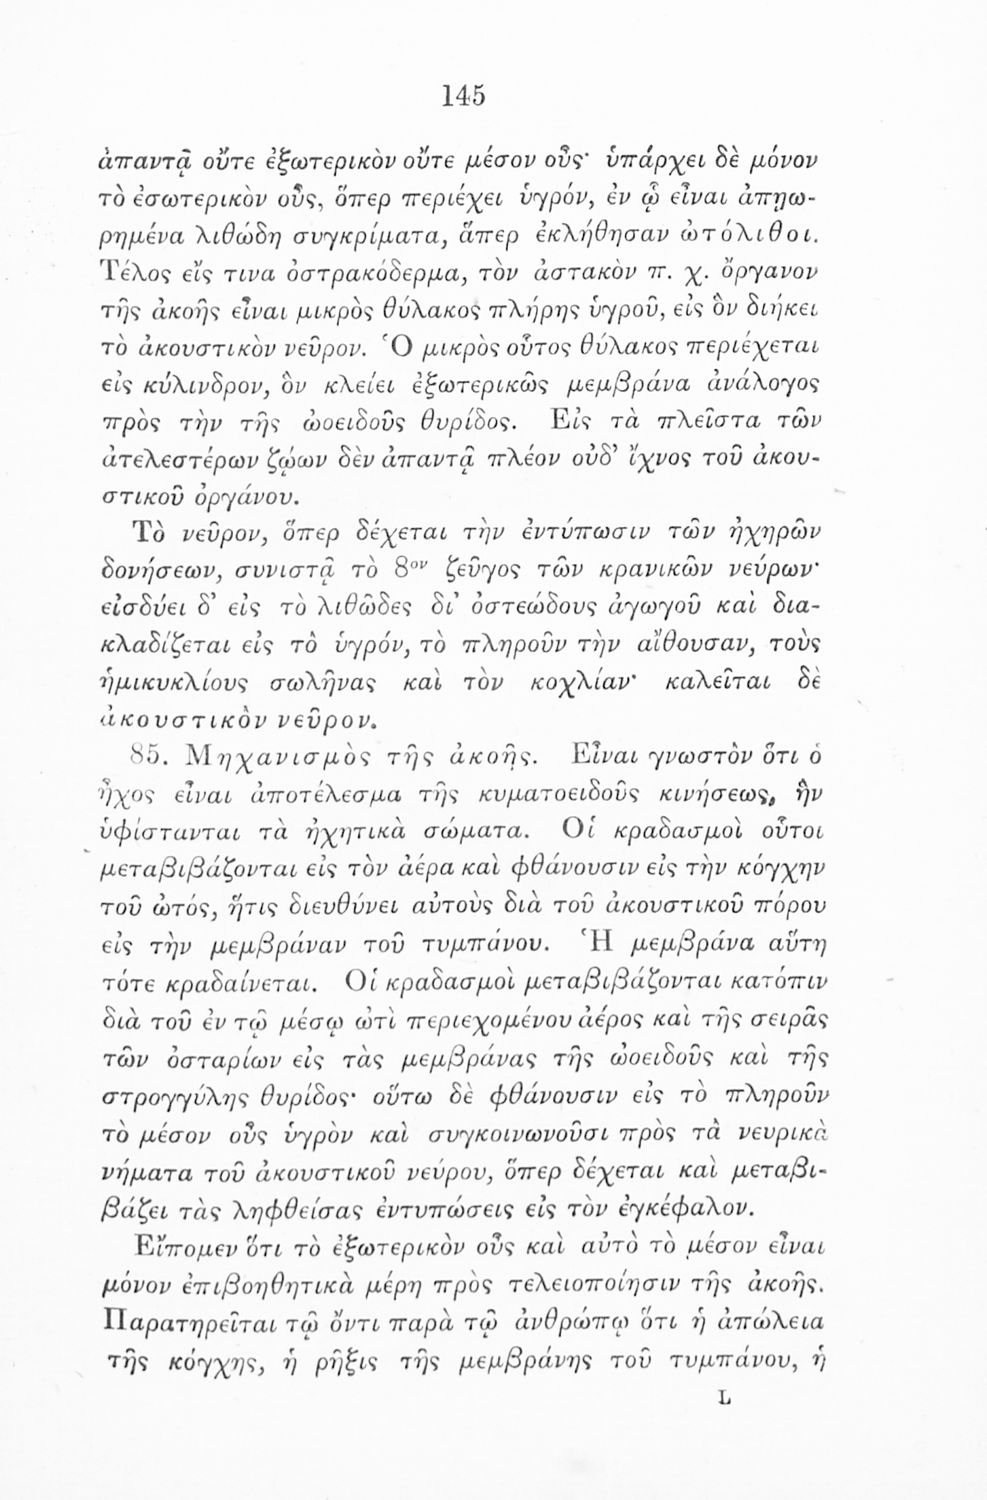 145
ἀπαντᾷ οὔτε ἐξωτερικὸν οὔτε μέσον οὖς· ὑπάρχει δὲ μόνον
τὸ ἐσωτερικὸν οὖς, ὅπερ περιέχει ὑγρόν, ἐν ᾧ εἶναι ἀπῃω-
ρημένα λιθώδη συγκρίματα, ἅπερ ἐκλήθησαν ὠτόλιθοι.
Τέλος εἴς τινα ὀστρακόδερμα, τὸν ἀστακὸν π. χ. ὄργανον
τῆς ἀκοῆς εἶναι μικρὸς θύλακος πλήρης ὑγροῦ, εἰς ὃν διήκει
τὸ ἀκουστικὸν νεῦρον. Ὁ μικρὸς οὗτος θύλακος περιέχεται
εἰς κύλινδρον, ὃν κλείει ἐξωτερικῶς μεμβράνα ἀνάλογος
πρὸς τὴν τῆς ὠοειδοῦς θυρίδος. Εἰς τὰ πλεῖστα τῶν
ἀτελεστέρων ζῴων δὲν ἀπαντᾷ πλέον οὐδ’ ἴχνος τοῦ ἀκου-
στικοῦ ὀργάνου.
Τὸ νεῦρον, ὅπερ δέχεται τὴν ἐντύπωσιν τῶν ἠχηρῶν
δονήσεων, συνιστᾷ τὸ 8ον ζεῦγος τῶν κρανικῶν νεύρων·
εἰσδύει δ’ εἰς τὸ λιθῶδες δι’ ὀστεώδους ἀγωγοῦ καὶ δια-
κλαδίζεται εἰς τὸ ὑγρόν, τὸ πληροῦν τὴν αἴθουσαν, τοὺς
ἡμικυκλίους σωλῆνας καὶ τὸν κοχλίαν· καλεῖται δὲ
ἀκουστικὸν νεῦρον.
85. Μηχανισμὸς τῆς ἀκοῆς. Εἶναι γνωστὸν ὅτι ὁ
ἦχος εἶναι ἀποτέλεσμα τῆς κυματοειδοῦς κινήσεως, ἣν
ὑφίστανται τὰ ἠχητικὰ σώματα. Οἱ κραδασμοὶ οὗτοι
μεταβιβάζονται εἰς τὸν ἀέρα καὶ φθάνουσιν εἰς τὴν κόγχην
τοῦ ὠτός, ἥτις διευθύνει αὐτοὺς διὰ τοῦ ἀκουστικοῦ πόρου
εἰς τὴν μεμβράναν τοῦ τυμπάνου. Ἡ μεμβράνα αὕτη
τότε κραδαίνεται. Οἱ κραδασμοὶ μεταβιβάζονται κατόπιν
διὰ τοῦ ἐν τῷ μέσῳ ὠτὶ περιεχομένου ἀέρος καὶ τῆς σειρᾶς
τῶν ὀσταρίων εἰς τὰς μεμβράνας τῆς ὠοειδοῦς καὶ τῆς
στρογγύλης θυρίδος· οὕτω δὲ φθάνουσιν εἰς τὸ πληροῦν
τὸ μέσον οὖς ὑγρὸν καὶ συγκοινωνοῦσι πρὸς τὰ νευρικὰ
νήματα τοῦ ἀκουστικοῦ νεύρου, ὅπερ δέχεται καὶ μεταβι-
βάζει τὰς ληφθείσας ἐντυπώσεις εἰς τὸν ἐγκέφαλον.
Εἴπομεν ὅτι τὸ ἐξωτερικὸν οὖς καὶ αὐτὸ τὸ μέσον εἶναι
μόνον ἐπιβοηθητικὰ μέρη πρὸς τελειοποίησιν τῆς ἀκοῆς.
Παρατηρεῖται τῷ ὄντι παρὰ τῷ ἀνθρώπῳ ὅτι ἡ ἀπώλεια
τῆς κόγχης, ἡ ῥῆξις τῆς μεμβράνης τοῦ τυμπάνου, ἡ
L